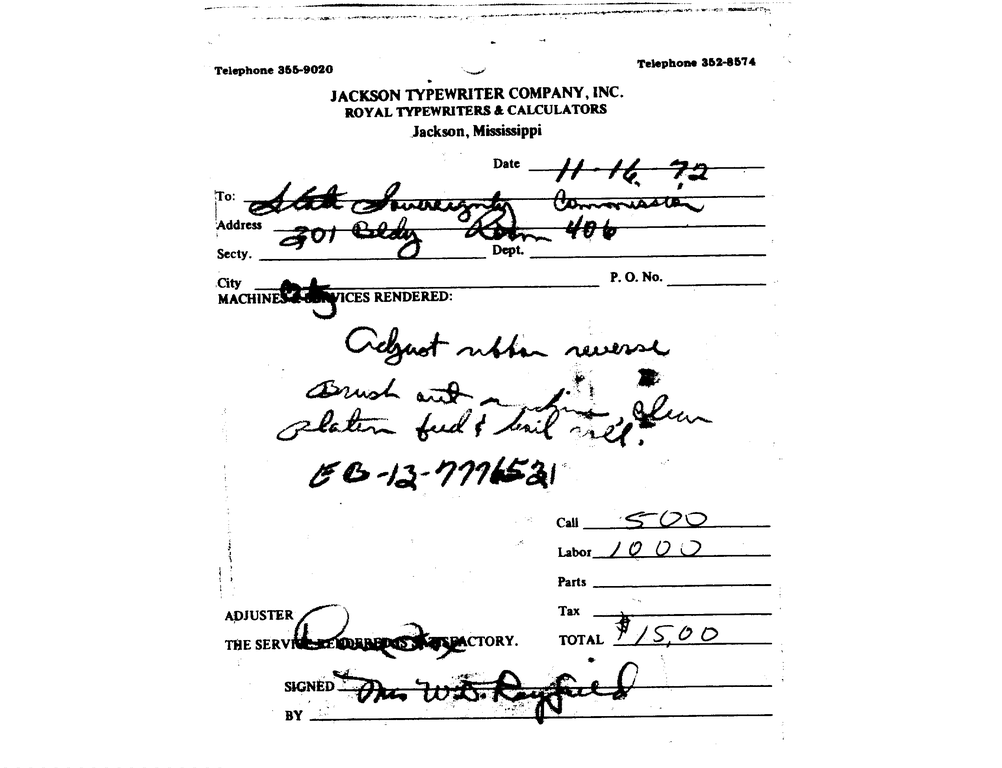 Telephone 355-9020 Telephone 352-8574
JACKSON TYPEWRITER COMPANY, INC.
ROYAL TYPEWRITERS & CALCULATORS
Jackson, Mississippi
Date 11-16-72
To: State Sovereignty Commission
Address 201 Bldg Room 406
Secty. Dept.
City City P. O. No.
MACHINES & SERVICES RENDERED:
Adjust ribbon reverse
Brush out machine, clean
platen feed & bail roll.
EB-13-7776521
Call 5 00
Labor 10 00
Parts
ADJUSTER Tax
THE SERVICE RENDERED IS SATISFACTORY. TOTAL $15,00
SIGNED Mrs W.D. Rayfield
BY